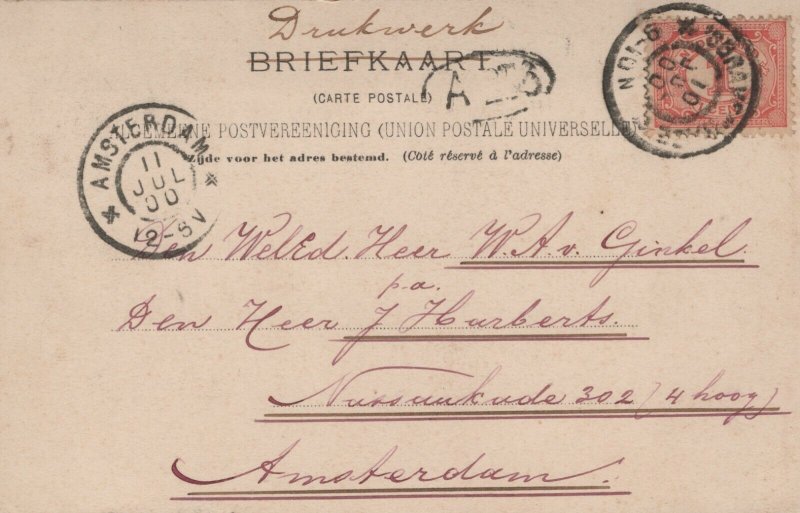 Drukwerk
BRIEFKAART
(CARTE POSTALE)
ALGEMEENE POSTVEREENIGING (UNION POSTALE UNIVERSELLE)
Zijde voor het adres bestemd. (Côté réservé à l'adresse)
AMSTERDAM
11
JUL
00
12-8V
9-10N
10
Den WelEd. Heer W.A.v. Ginkel
p.a.
Den Heer J Hurberts.
302 (4 hoog)
Amsterdam.